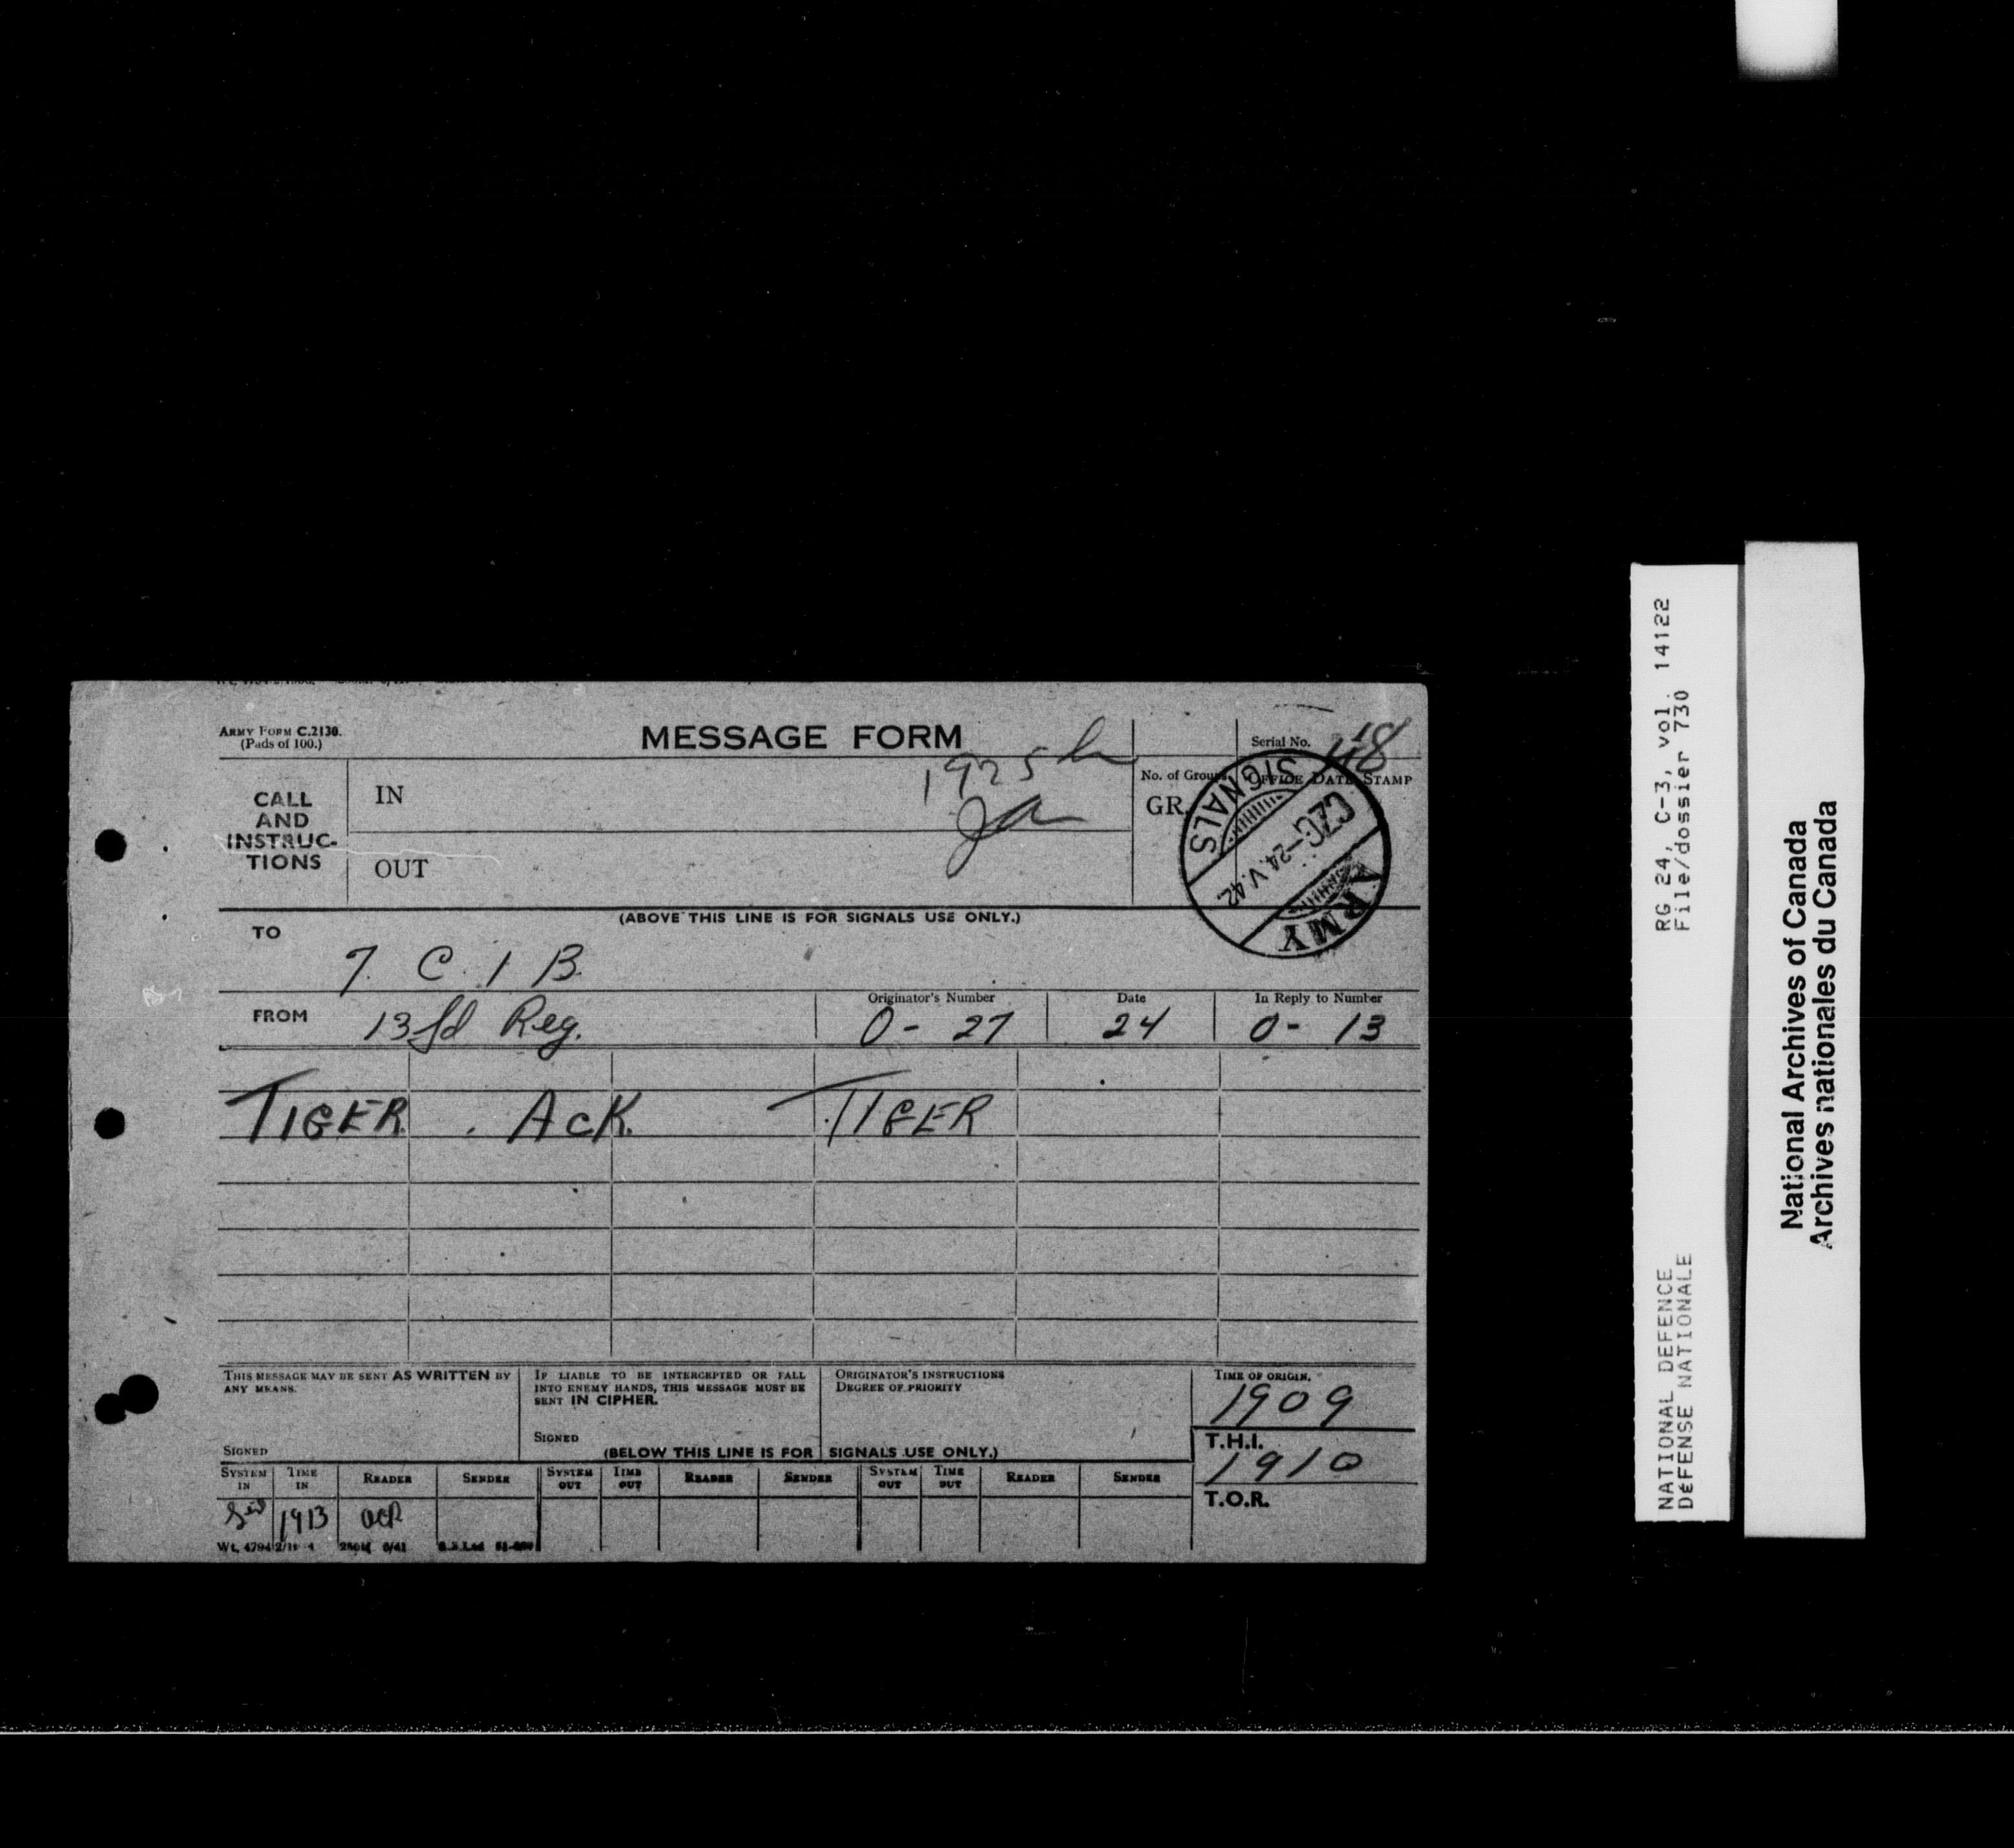 ARMY FORM C.2130.
(Pads of 100.)
MESSAGE FORM
Serial No. 48
1925h
CALL AND INSTRUC-TIONS
IN
OUT
No. of Groups
GR.
OFFICE DATE STAMP
ARMY SIGNALS
CZC -24.V.42
(ABOVE THIS LINE IS FOR SIGNALS USE ONLY.)
TO
7. C. I B.
FROM 13 fd Reg.
Originator's Number
0- 27
Date
24
In Reply to Number
0- 13
TIGER. ACK. TIGER
THIS MESSAGE MAY BE SENT AS WRITTEN BY
ANY MEANS.
SIGNED
IF LIABLE TO BE INTERCEPTED OR FALL
INTO ENEMY HANDS, THIS MESSAGE MUST BE
SENT IN CIPHER.
SIGNED
ORIGINATOR'S INSTRUCTIONS
DEGREE OF PRIORITY
TIME OF ORIGIN.
1909
T.H.I.
1910
T.O.R.
(BELOW THIS LINE IS FOR SIGNALS USE ONLY.)
SYSTEM IN TIME IN READER SENDER SYSTEM OUT TIME OUT READER SENDER SYSTEM OUT TIME OUT READER SENDER
1913
RG 24, C-3, vol. 14122
File/dossier 730
NATIONAL DEFENCE
DÉFENSE NATIONALE
National Archives of Canada
Archives nationales du Canada